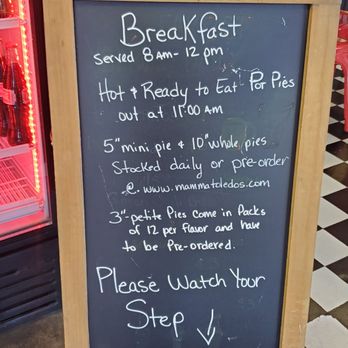 Breakfast
served 8 AM - 12 pm
Hot & Ready to Eat Pot Pies
out at 11:00 AM
5" mini pie & 10" whole pies
Stocked daily or pre-order
@ www.mammatoledos.com
3"-petite Pies come in Packs
of 12 per flavor and have
to be Pre-ordered.
Please Watch Your
Step ↓